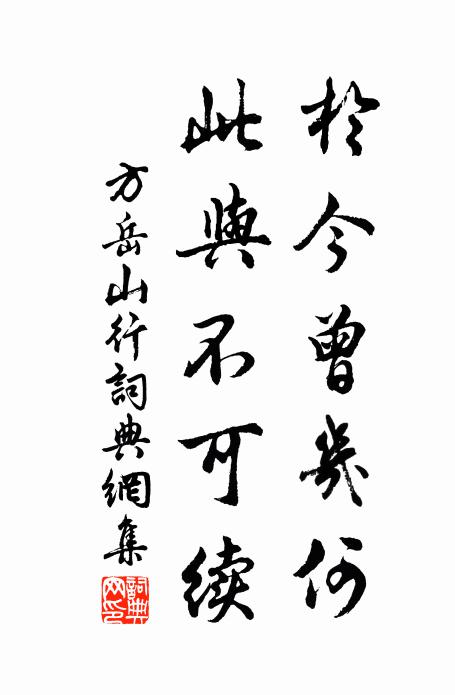 於今曾幾何
此與不可续
方岳山行詞典網集
詞典网印